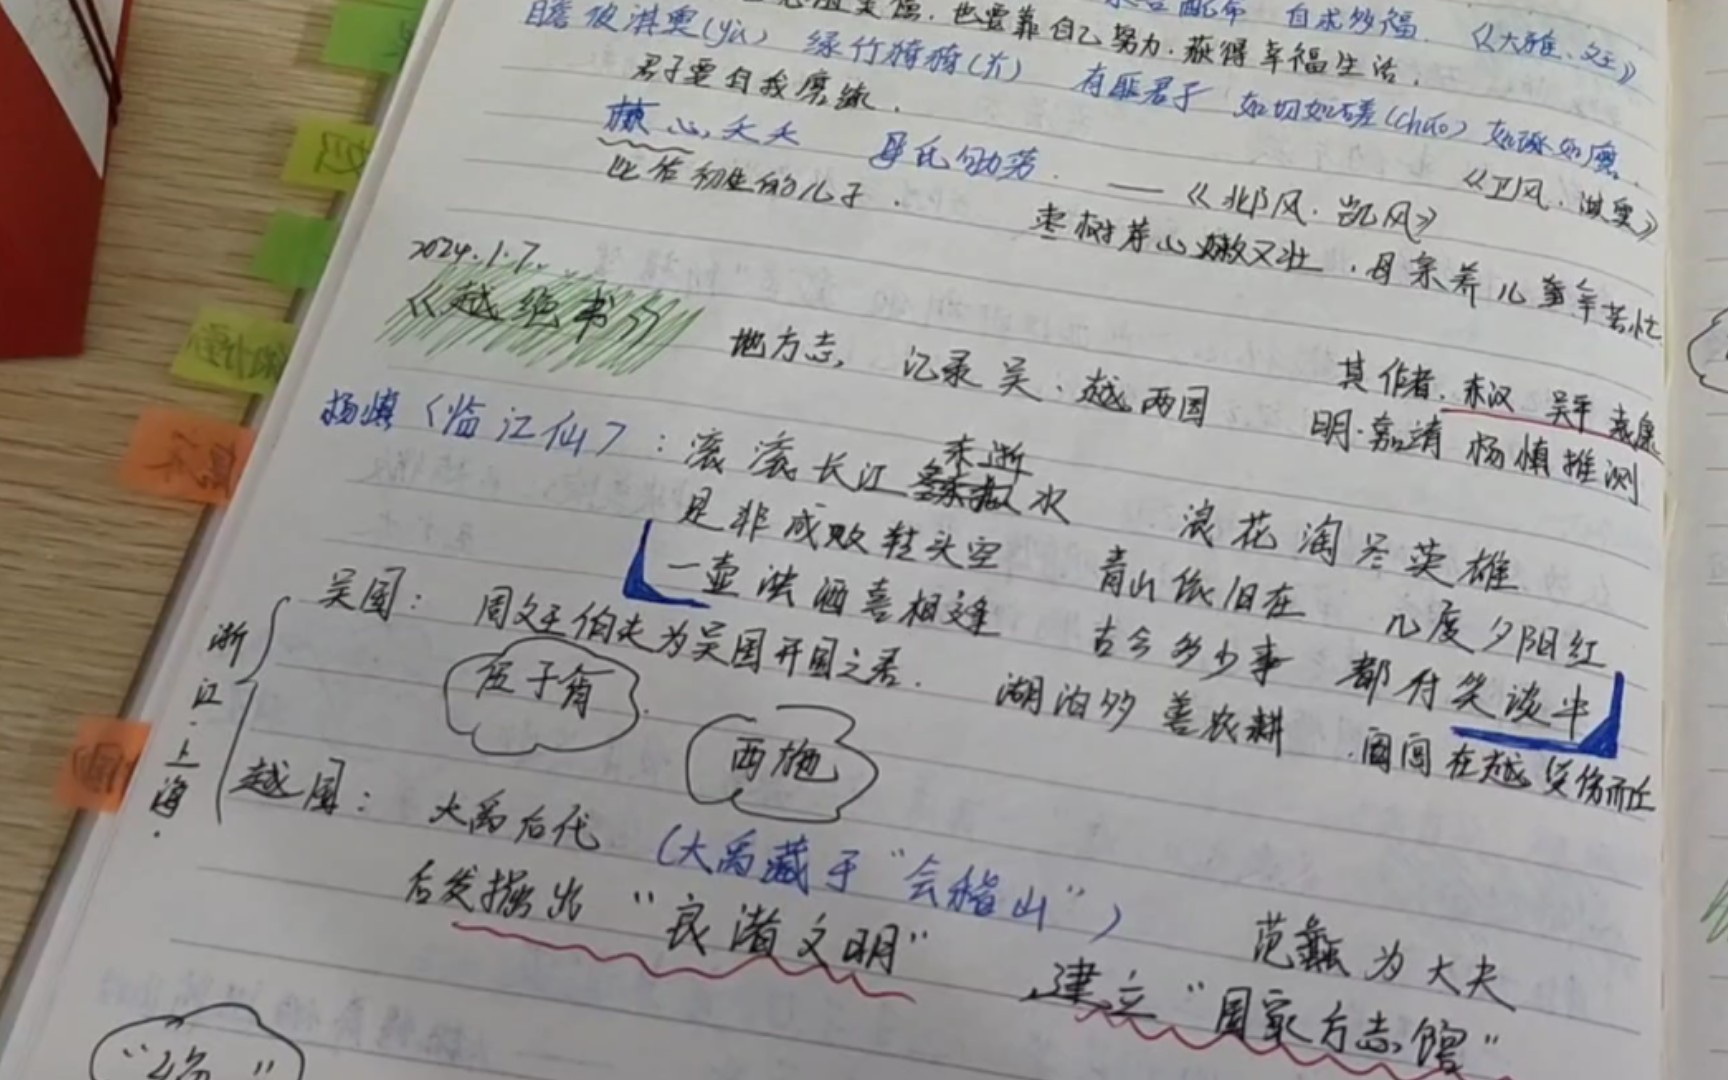 永言配命 自求多福. 《大雅·文王》
也要靠自己努力.获得幸福生活.
瞻彼淇奥(yù) 绿竹猗猗(yī) 有匪君子 如切如磋(chuō) 如琢如磨.
君子要自我磨练.
《卫风.淇奥》
棘心夭夭 母氏劬劳. ——《邶风.凯风》
比作初生的儿子.
枣树芽心嫩又壮.母亲养儿辛苦忙.
2024.1.7.
《越绝书》 地方志, 记录吴.越两国
其作者.东汉 吴平 袁康
明.嘉靖 杨慎推测
杨慎〈临江仙〉:滚滚长江东逝水 浪花淘尽英雄
是非成败转头空 青山依旧在 几度夕阳红
一壶浊酒喜相逢 古今多少事 都付笑谈中
浙江.上海.
吴国: 周文王伯夫为吴国开国之君. 湖泊多 善农耕 .阖闾在越受伤而亡
伍子胥
西施
越国: 大禹后代 (大禹藏于“会稽山”)
后发掘出“良渚文明” 范蠡为大夫
建立“国家方志馆”